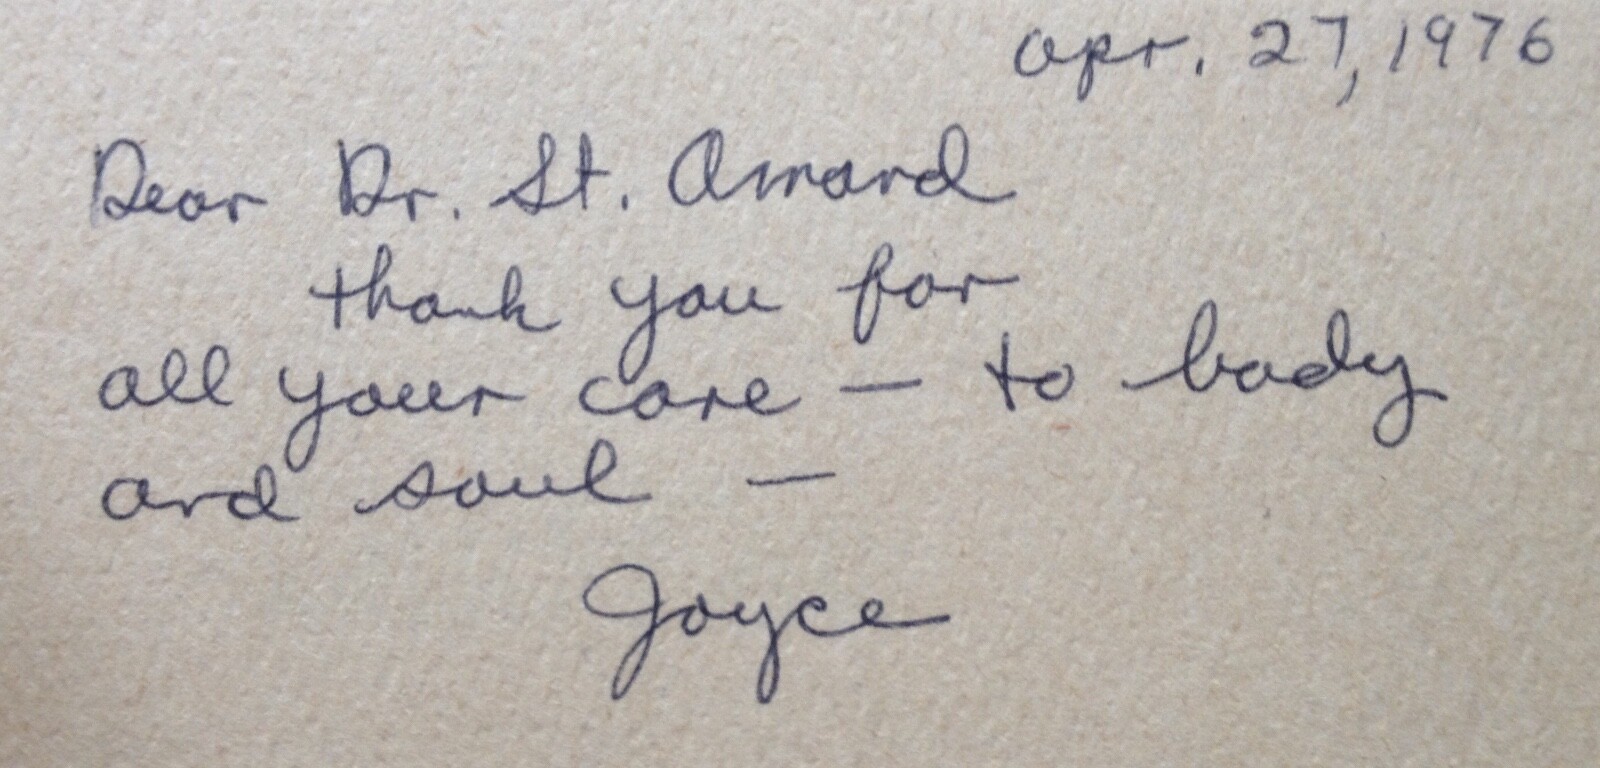 Apr. 27, 1976
Dear Dr. St. Amand
thank you for
all your care — to body
and soul —
Joyce